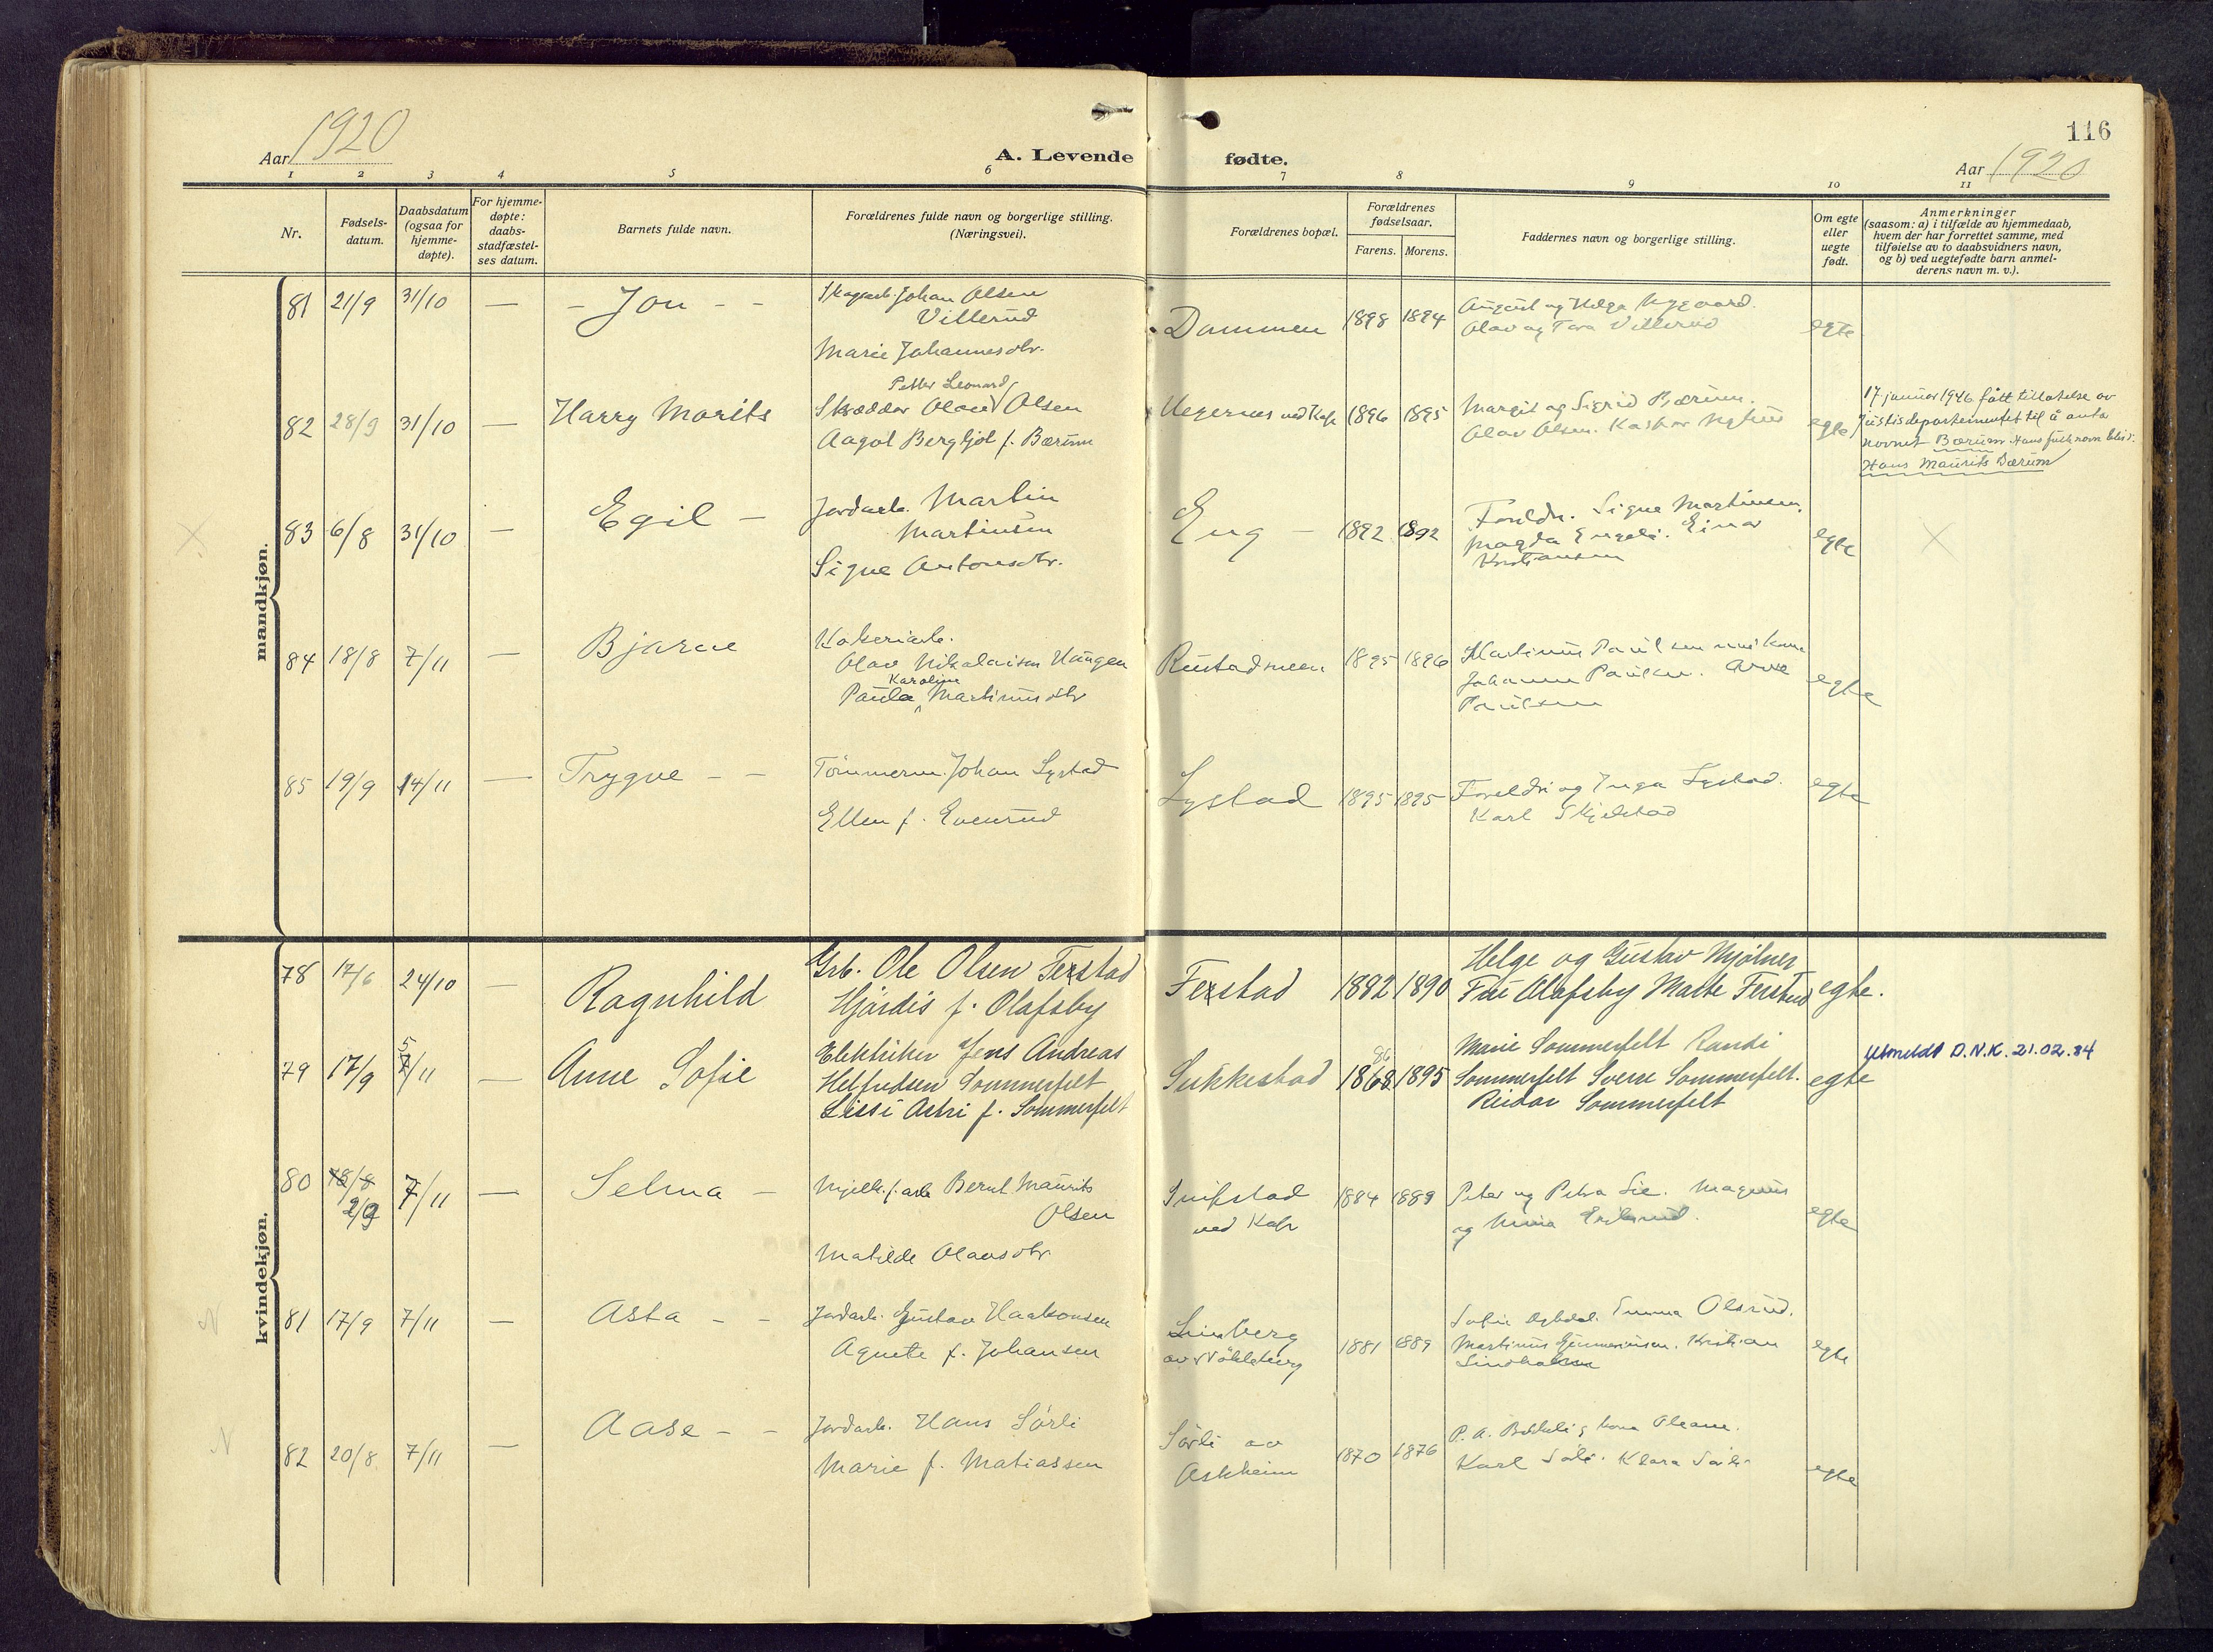 116
Aar 1920
A. Levende fødte.
Aar 1920
1 2 3 4 5 6 7 8 9 10 11
Nr.
Fødsels-
datum.
Daabsdatum
(ogsaa for
hjemme-
døpte).
For hjemme-
døpte:
daabs-
stadfæstel-
ses datum.
Barnets fulde navn.
Forældrenes fulde navn og borgerlige stilling.
(Næringsvei).
Forældrenes bopæl.
Forældrenes
fødselsaar.
Farens. Morens.
Faddernes navn og borgerlige stilling.
Om egte
eller
uegte
født.
Anmerkninger
(saasom: a) i tilfælde av hjemmedaab,
hvem der har forrettet samme, med
tilføielse av to daabsvidners navn,
og b) ved uegtefødte barn anmel-
derens navn m. v.).
mandkjøn.
81 21/9 31/10 — - Jon - -
Skogsarb. Johan Olsen
Villerud
Marie Johannesdtr.
Dammen 1898 1894
August og Helga Nygaard.
Olav og Tora Villerud
egte
82 28/9 31/10 — Harry Morits
Petter Leonard
Skrædder Olaus Olsen
Aagot Bergljot f. Bærum
1896 1895
Margit og Sigrid Bærum.
Olav Olsen. Kaspar Myhrer
egte
17 januar 1946 fått tillatelse av
Justisdepartementet til å anta
navnet Bærum. Hans fulle navn blir:
Hans Maurits Bærum
X 83 6/8 31/10 — Egil —
Jordarb. Martin
Martinsen
Signe Antonsdtr.
Eng — 1892 1892
Foreldr. Signe Martinsen.
Magda Engeli. Einar
Kristiansen
egte X
84 18/8 7/11 — Bjarne
Kokeriarb.
Olav Nikolaisen Haugen
Karoline
Paula Martinusdtr
Rustadmoen 1895 1896
Martinus Paulsen med kone
Johanne Paulsen. Arne
Paulsen
egte
85 19/9 14/11 — Trygve - -
Tømmerm. Johan Lystad
Ellen f. Evenrud
Lystad 1895 1895
Foreldr. og Inga Lystad.
Karl Skjelstad
egte
kvindekjøn.
78 17/6 24/10 — Ragnhild
Grb. Ole Olsen Ferstad
Hjördis f. Olafsby
Ferstad 1882 1890
Helge og Gustav Mjølner
Fru Olafsby Marte Ferstad
egte.
79 17/9 5/11 — Anne Sofie
Elektriker Jens Andreas
Helfredsen Sommerfelt
Lissi Astri f. Sommerfelt
Sukkestad 1868 86 1895
Marie Sommerfelt Randi
Sommerfelt Sverre Sommerfelt.
Reidar Sommerfelt
egte
Utmeldt D.N.K. 21.02.84
80 18/8 2/9 7/11 — Selma —
Mjelk.f.arb Bernt Maurits
Olsen
Matilde Olausdtr.
Snipstad
ved Kap 1884 1889
Peter og Petra Lie. Magnus
og Mina
egte
N 81 17/9 7/11 — Asta - -
Jordarb. Gustav Haakonsen
Agnete f. Johansen
Linberg
av Nökleberg 1881 1889
Emma Olsrud.
Martinus Gunneriusen. Kristian
Lindholm
egte
N 82 20/8 7/11 — Aase - -
Jordarb. Hans Sörli
Marie f. Matiassen
Sörli av
Askheim 1870 1876
Karl Sörli. Klara Sörli
egte